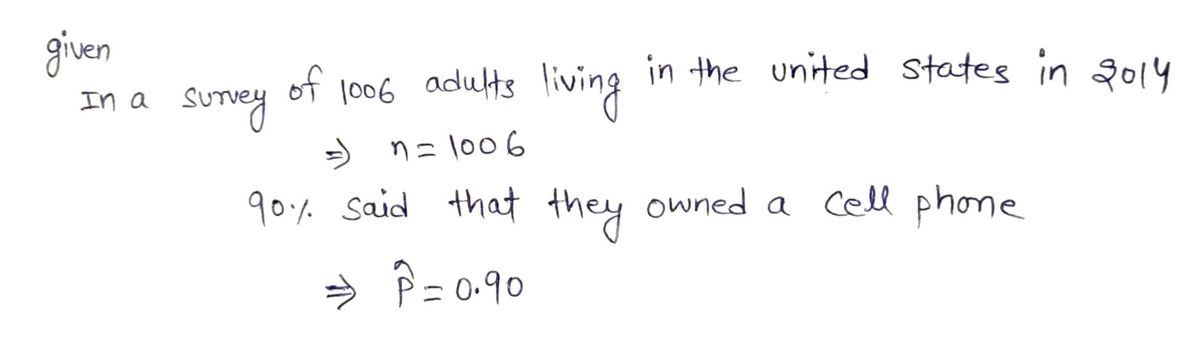 given
In a survey of 1006 adults living in the united states in 2014
⇒ n = 1006
90% said that they owned a cell phone
⇒ p̂ = 0.90